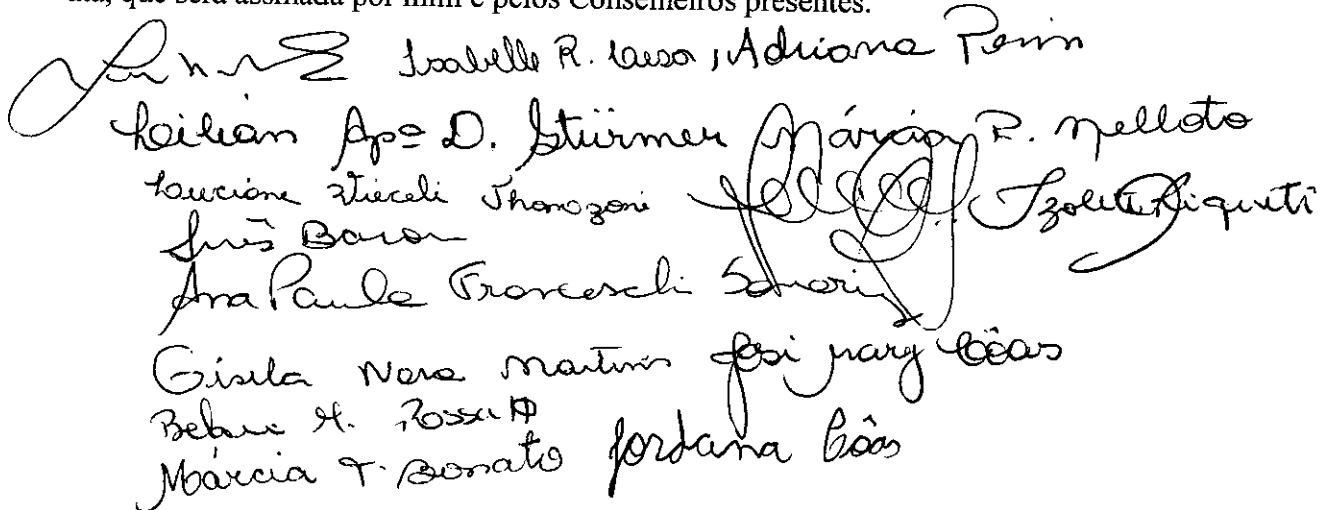 que será assinada por mim e pelos Conselheiros presentes.
Isabelle R. , Adriana Penin
Leilian Apª D. Stürmer Márcia R. Melloto
Luciane Vieceli Thomazoni Izolete Riquetti
Inês Baron
Ana Paula Franceschi
Gisela Nara Martins Josi Mary Bôas
M. Rossatto
Márcia T. Bonato Jordana Bôas